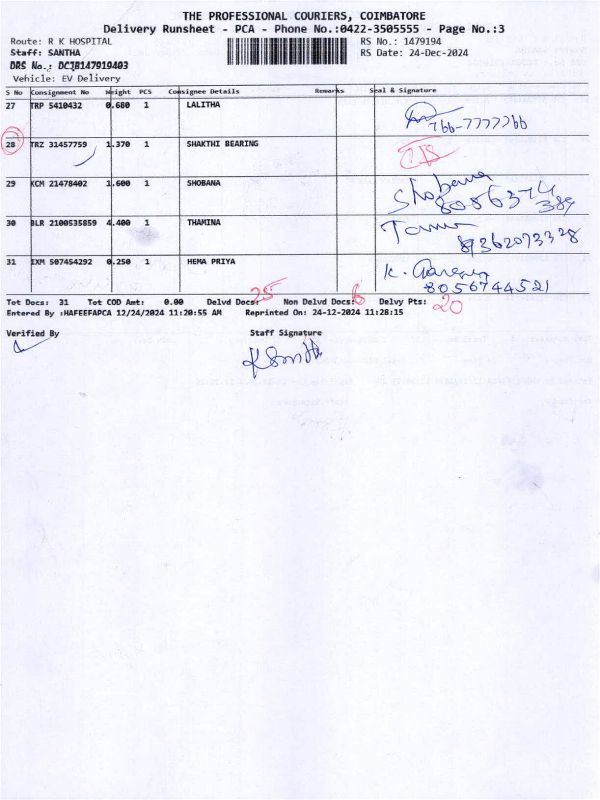 THE PROFESSIONAL COURIERS, COIMBATORE
Delivery Runsheet - PCA - Phone No.:0422-3505555 - Page No.:3
Route: R K HOSPITAL
RS No.: 1479194
Staff: SANTHA
RS Date: 24-Dec-2024
DRS No.: DCJB147919403
Vehicle: EV Delivery
S No Consignment No Weight PCS Consignee Details Remarks Seal & Signature
27 TRP 5410432 0.680 1 LALITHA
766-7777766
28 TRZ 31457759 1.370 1 SHAKTHI BEARING
29 KCM 21478402 1.600 1 SHOBANA Shobana
8056374
389
30 BLR 2100535859 4.400 1 THAMINA
9362073328
31 IXM 507454292 0.250 1 HEMA PRIYA K.
8056744521
Tot Docs: 31 Tot COD Amt: 0.00 Delvd Docs: 25 Non Delvd Docs: 6 Delvy Pts: 20
Entered By :HAFEEFAPCA 12/24/2024 11:20:55 AM Reprinted On: 24-12-2024 11:28:15
Verified By Staff Signature